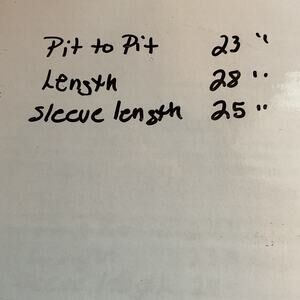 Pit to Pit 23 "
Length 28 "
Sleeve length 25 "